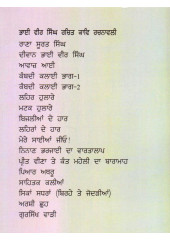 ਭਾਈ ਵੀਰ ਸਿੰਘ ਰਚਿਤ ਕਾਵਿ ਰਚਨਾਵਲੀ
ਰਾਣਾ ਸੂਰਤ ਸਿੰਘ
ਦੀਵਾਨ ਭਾਈ ਵੀਰ ਸਿੰਘ
ਆਵਾਜ਼ ਆਈ
ਕੰਬਦੀ ਕਲਾਈ ਭਾਗ-1
ਕੰਬਦੀ ਕਲਾਈ ਭਾਗ-2
ਲਹਿਰ ਹੁਲਾਰੇ
ਮਟਕ ਹੁਲਾਰੇ
ਬਿਜਲੀਆਂ ਦੇ ਹਾਰ
ਲਹਿਰਾਂ ਦੇ ਹਾਰ
ਮੇਰੇ ਸਾਈਆਂ ਜੀਓ!
ਨਿਨਾਣ ਭਰਜਾਈ ਦਾ ਵਾਰਤਾਲਾਪ
ਪ੍ਰੀਤ ਵੀਣਾ ਤੇ ਕੰਤ ਮਹੇਲੀ ਦਾ ਬਾਰਾਮਾਹ
ਪਿਆਰ ਅਥਰੂ
ਸਾਹਿਤਕ ਕਲੀਆਂ
ਸਿਕਾਂ ਸਧਰਾਂ (ਬਿਰਹੇ ਤੇ ਜੋਦੜੀਆਂ)
ਅਰਸ਼ੀ ਛੁਹ
ਗੁਰਸਿੱਖ ਵਾੜੀ